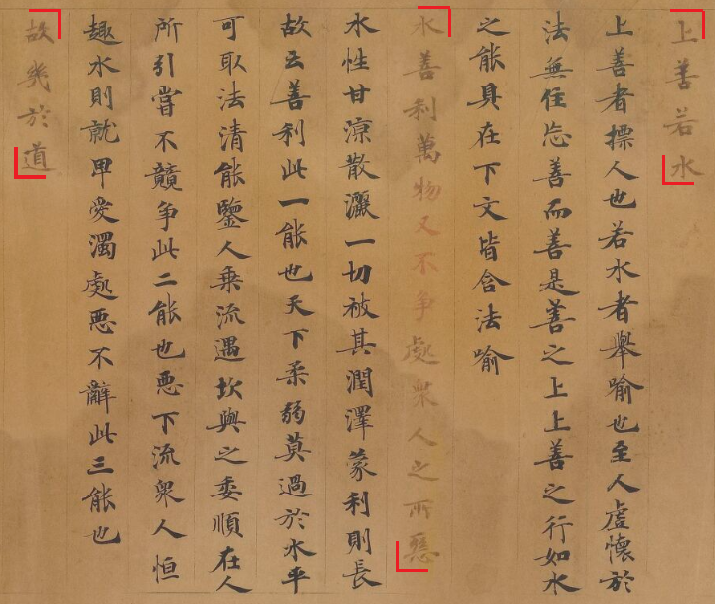 上善若水
上善者摽人也若水者舉喻也至人虛懷於
法無住忘善而善是善之上上善之行如水
之能具在下文皆含法喻
水善利萬物又不争處衆人之所惡
水性甘涼散灑一切被其潤澤蒙利則長
故云善利此一能也天下柔弱莫過於水平
可取法清能鑒人乗流遇坎與之委順在人
所引甞不競争此二能也惡下流衆人恒
趣水則就卑受濁處惡不辭此三能也
故幾於道